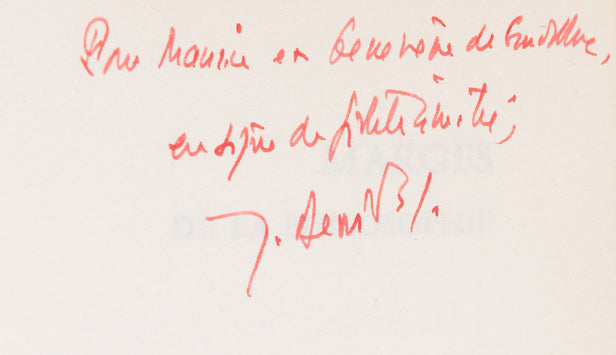 Pour Maurice et Geneviève de Gandillac,
en signe de fidèle amitié,
MARGES
J. Derrida.
DE LA PHILOSOPHIE